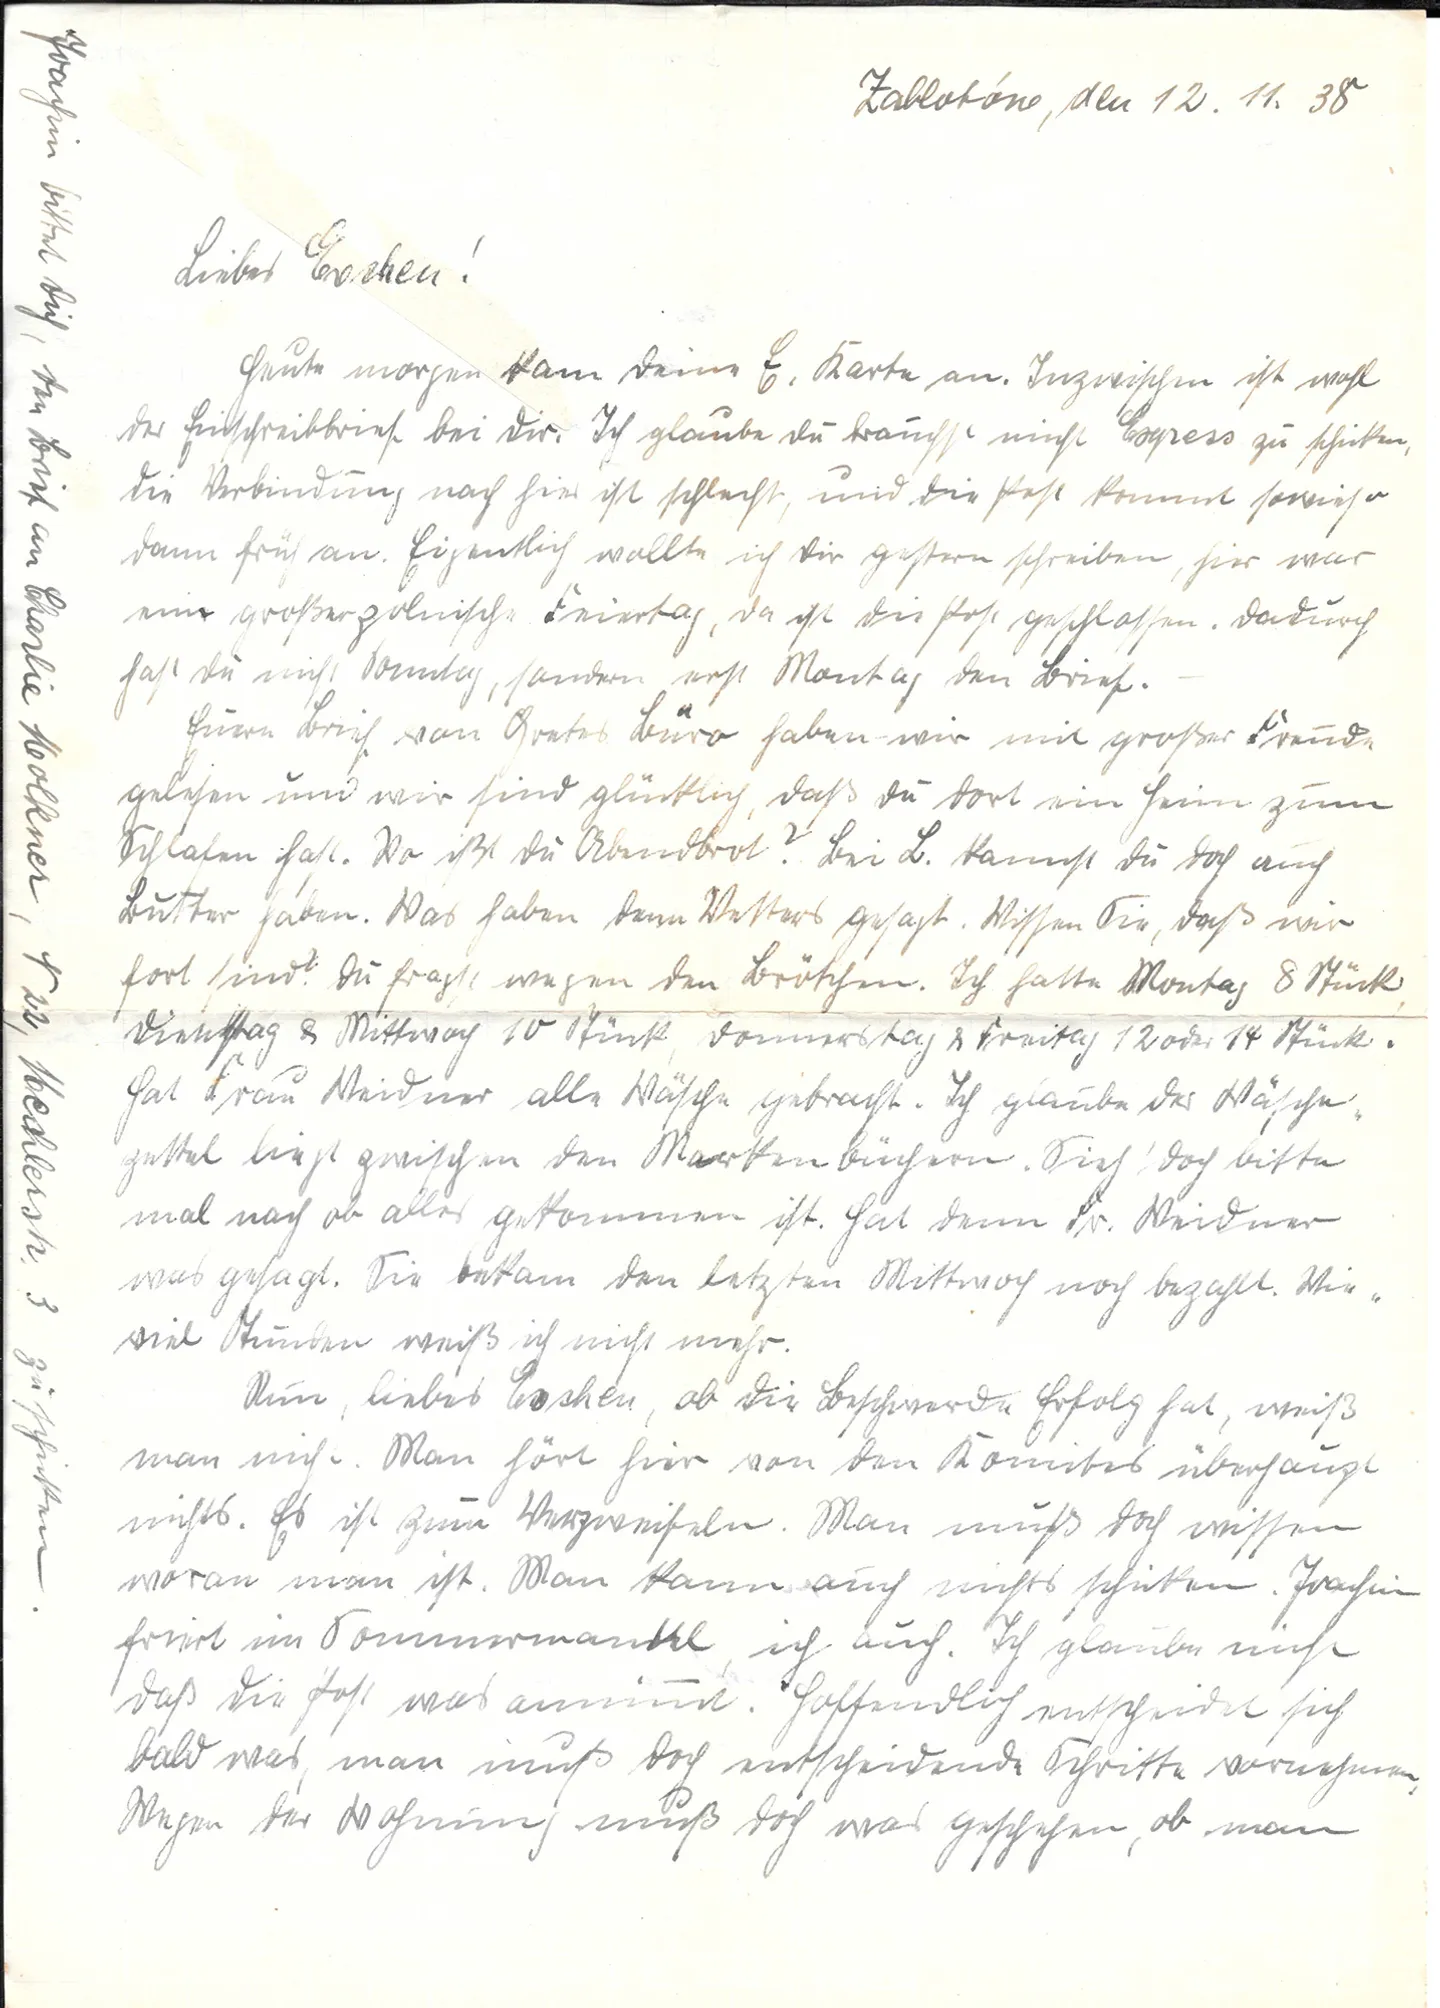 Zablotóne, den 12. 11. 38
Liebes Evchen!
Heute morgen kam deine E. Karte an. Inzwischen ist wohl
der Einschreibbrief bei dir. Ich glaube du brauchst nicht Express zu schicken,
die Verbindung nach hier ist schlecht, und die Post kommt sowieso
dann früh an. Eigentlich wollte ich dir gestern schreiben, hier war
ein großer polnische Feiertag, da ist die Post geschlossen. Dadurch
hast du nicht Sonntag, sondern erst Montag den Brief. –
Euern Brief von Gretes Büro haben wir mit großer Freude
gelesen und wir sind glücklich, daß du dort ein Heim zum
Schlafen hast. Wo ißt du Abendbrot? Bei L. kannst du doch auch
Butter haben. Was haben denn Vetters gesagt. Wissen Sie, daß wir
fort sind? Du fragst wegen den Brötchen. Ich hatte Montag 8 Stück,
Dienstag & Mittwoch 10 Stück, Donnerstag & Freitag 12 oder 14 Stück.
Hat Frau Weidner alle Wäsche gebracht. Ich glaube der Wäsche-
zettel liegt zwischen den Markenbüchern. Sieh' doch bitte
mal nach ob alles gekommen ist. Hat denn Fr. Weidner
was gesagt. Sie bekam den letzten Mittwoch noch bezahlt. Wie-
viel Stunden weiß ich nicht mehr.
Nun, liebes Evchen, ob die Beschwerde Erfolg hat, weiß
man nicht. Man hört hier von den Komites überhaupt
nichts. Es ist zum Verzweifeln. Man muß doch wissen
woran man ist. Man kann auch nichts schicken. Joachim
friert im Sommermantel, ich auch. Ich glaube nicht
daß die Post was annimmt. Hoffendlich entscheidet sich
bald was, man muß doch entscheidende Schritte vornehmen.
Wegen der Wohnung muß doch was geschehen, ob man
Joachim bittet dich, den Brief an Charlie Wolkner, N 22, 3 zu schicken.